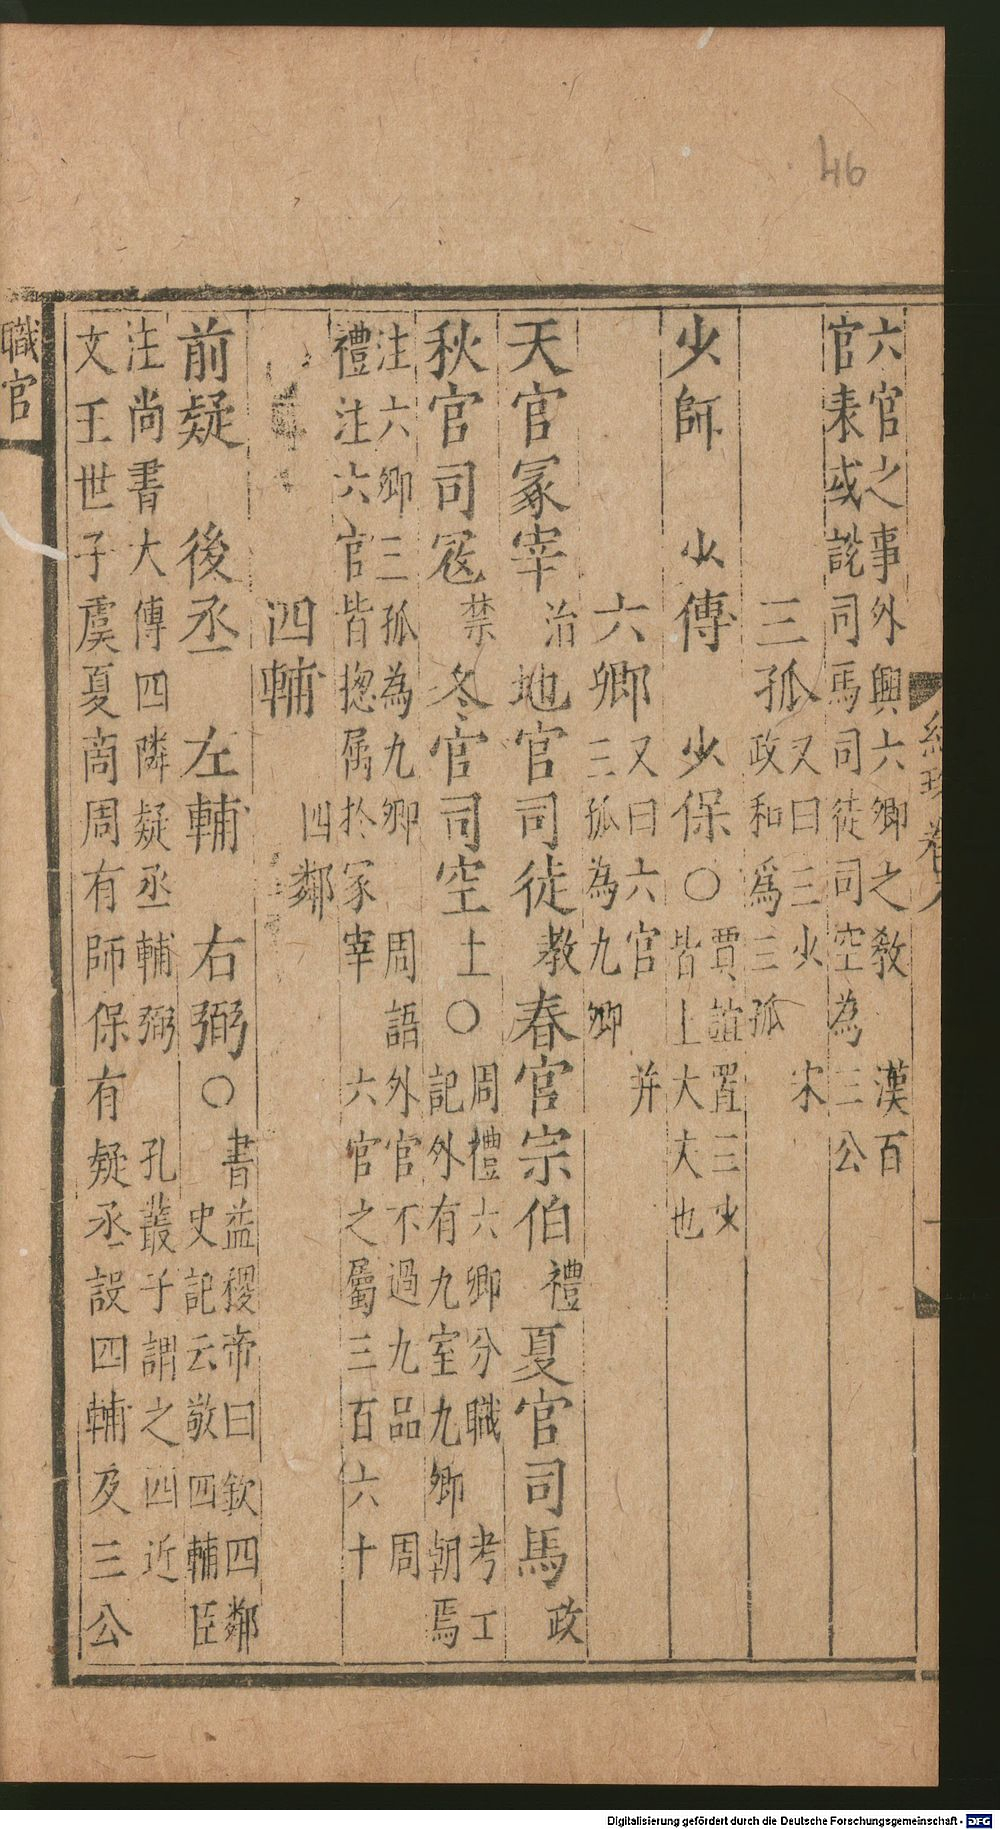 46
六官之事外興六卿之教　漢百
官表或說司馬司徒司空為三公
三孤
又曰三少　宋
政和爲三孤
少師　少傅　少保〇
賈誼置三少
皆上大夫也
六卿
又曰六官　并
三孤為九卿
天官冢宰治地官司徒教春官宗伯禮夏官司馬政
秋官司寇禁冬官司空土〇
周禮六卿分職　考工
記外有九室九卿朝焉
注六卿三孤為九卿　周語外官不過九品　周
禮注六官皆揔属於冢宰　六官之屬三百六十
四輔
四鄰
前疑　後丞　左輔　右弼〇
書益稷帝曰欽四鄰
史記云敬四輔臣
注尚書大傅四隣疑丞輔弼　孔叢子謂之四近
文王世子虞夏商周有師保有疑丞設四輔及三公
職官
Digitalisierung gefördert durch die Deutsche Forschungsgemeinschaft - DFG